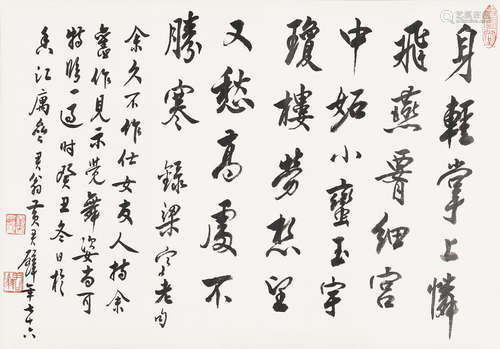 身輕掌上憐
飛燕霄細宮
中妬小蠻玉宇
瓊樓勞想望
又愁高處不
勝寒 錄梁寒老句
余久不作仕女友人持余
舊作見示覺舞姿尚可
特臨一過時癸丑冬日於
香江寓齋君翁黃君璧年七十六